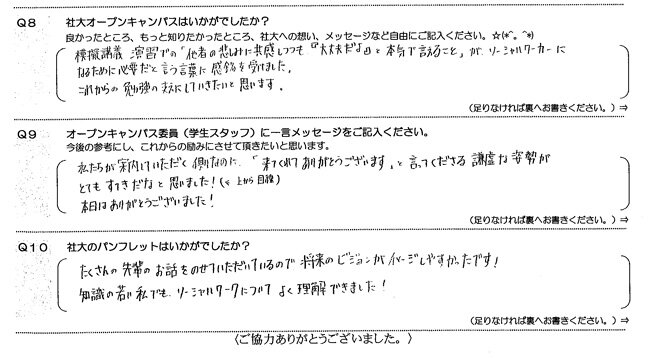 Q8 社大オープンキャンパスはいかがでしたか？
良かったところ、もっと知りたかったところ、社大への想い、メッセージなど自由にご記入ください。☆(*^。^*)
模擬講義 演習での「他者の悲しみに共感しつつも『大丈夫だよ』と本気で言えること」が、ソーシャルワーカーに
なるために必要だと言う言葉に感銘を受けました。
これからの勉強の支えにしていきたいと思います。
(足りなければ裏へお書きください。) ⇒
Q9 オープンキャンパス委員（学生スタッフ）に一言メッセージをご記入ください。
今後の参考にし、これからの励みにさせて頂きたいと思います。
私たちが案内していただく側なのに、「来てくれてありがとうございます」と言ってくださる謙虚な姿勢が
とてもすてきだなと思いました！(← 上から目線)
本日はありがとうございました！
(足りなければ裏へお書きください。) ⇒
Q10 社大のパンフレットはいかがでしたか？
たくさんの先輩のお話をのせていただいているので将来のビジョンがイメージしやすかったです！
知識の若い私でも、ソーシャルワークについてよく理解できました！
(足りなければ裏へお書きください。) ⇒
〈ご協力ありがとうございました。〉